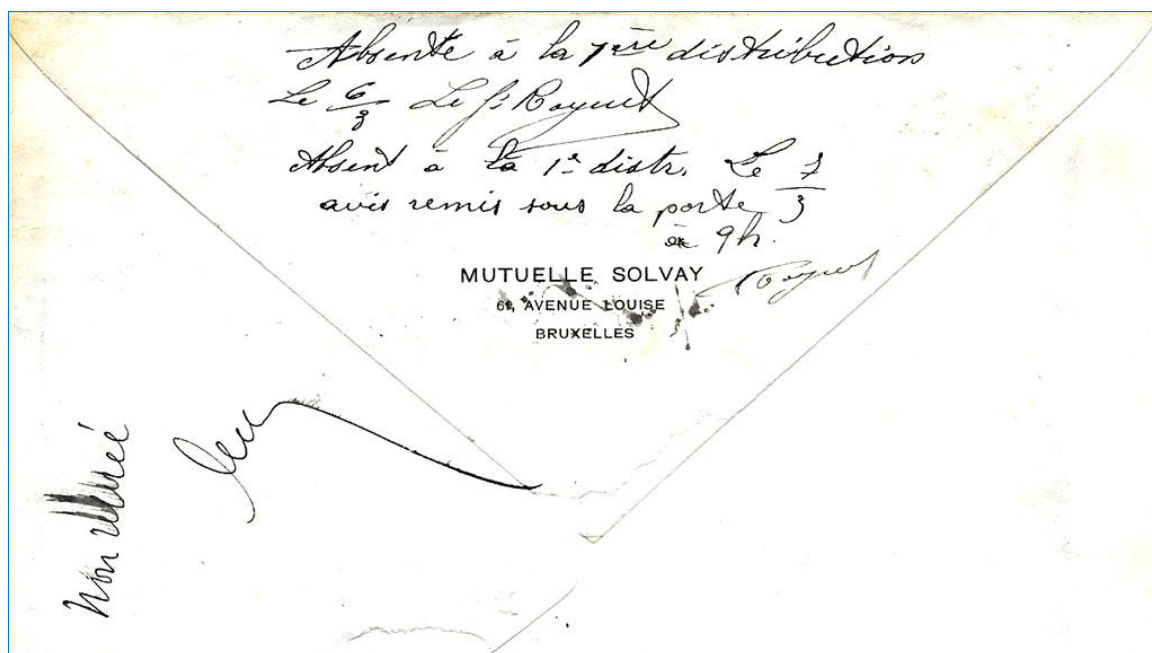 Absente à la 1ère distribution
Le 6/3 Le f. Roquet
Absent à la 1e distr. Le 7/3
avis remis sous la porte
à 9h.
MUTUELLE SOLVAY
61, AVENUE LOUISE
BRUXELLES
Non réclamé